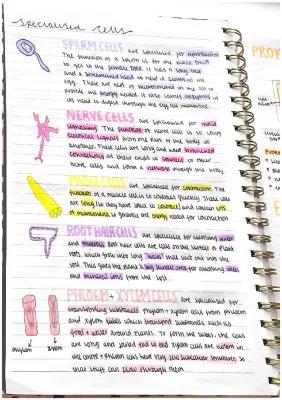 Specialised Cells
SPERM CELLS are specialised for reproduction
The function of a sperm is to get the male DNA
to get to the female DNA. It has a long tail
and a streamlined head to help it swim to the
egg. There are lots of mitochondria in the cell to
provide the energy needed. It also carries enzymes in
its head to digest through the egg cell membrane.
NERVE CELLS are specialised for rapid
signalling. The function of nerve cells is to carry
electrical signals from one part of the body to
another. These cells are long and have branched
connections at their ends to connect to other
nerve cells and form a network through the body
MUSCLE CELLS are specialised for contraction. The
function of a muscle cell is to contract quickly. These cells
are long (so they have space to contract) and contain lots
of mitochondria to generate the energy needed for contraction
ROOT HAIR CELLS are specialised for absorbing water
and minerals. Root hair cells are cells on the surface of plant
roots, which grow into long "hairs" that stick out into the
soil. This gives the plant a big surface area for absorbing water
and mineral ions from the soil.
PHLOEM + XYLEM CELLS are specialised for
transporting substances. Phloem + xylem cells form phloem
and xylem tubes which transport substances such as
food + water around plants. To form the tubes, the cells
are long and joined end to end. Xylem cells are hollow in
the centre + phloem cells have very few subcellular structures so
that stuff can flow through them
phloem
xylem
PROK